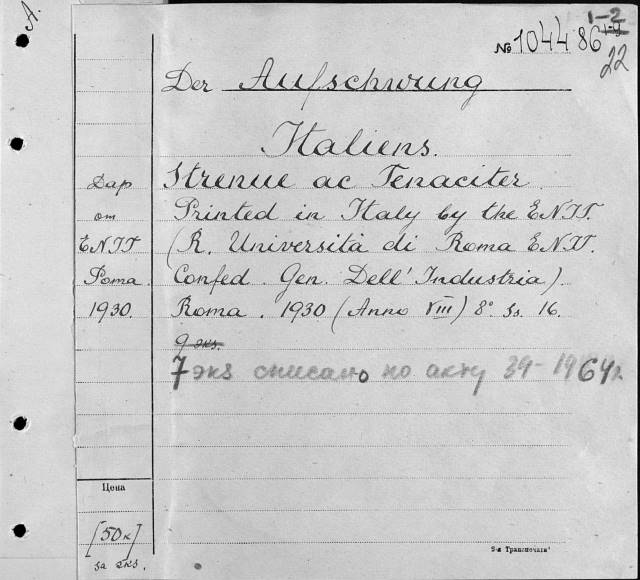 A.
1-2
№ 104486
22
Der Aufschwung
Italiens.
Strenue ac Tenaciter.
Printed in Italy by the ENIT.
(R. Università di Roma ENIT.
Confed. Gen. Dell'Industria)
Roma. 1930 (Anno VIII) 8° Ss. 16.
9 экз.
7 экз списано по акту 39-1964 г.
Дар
от
ENIT
Рома.
1930.
Цена
[50к]
за экз.
9-я Транспечать